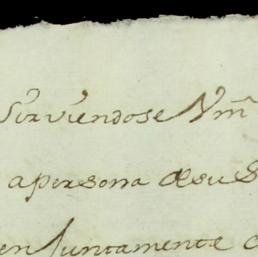 Sirviendose Vm̃
a persona de su S
en Juntamente c